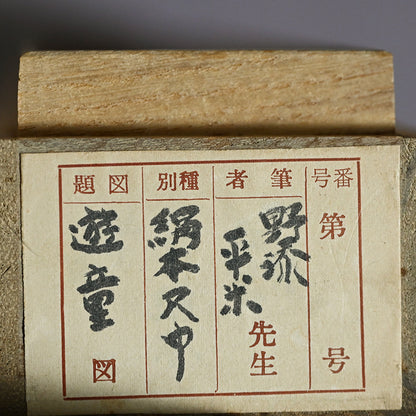 番号
第 号
筆者
野添平米先生
種別
絹本尺巾
図題
遊童図